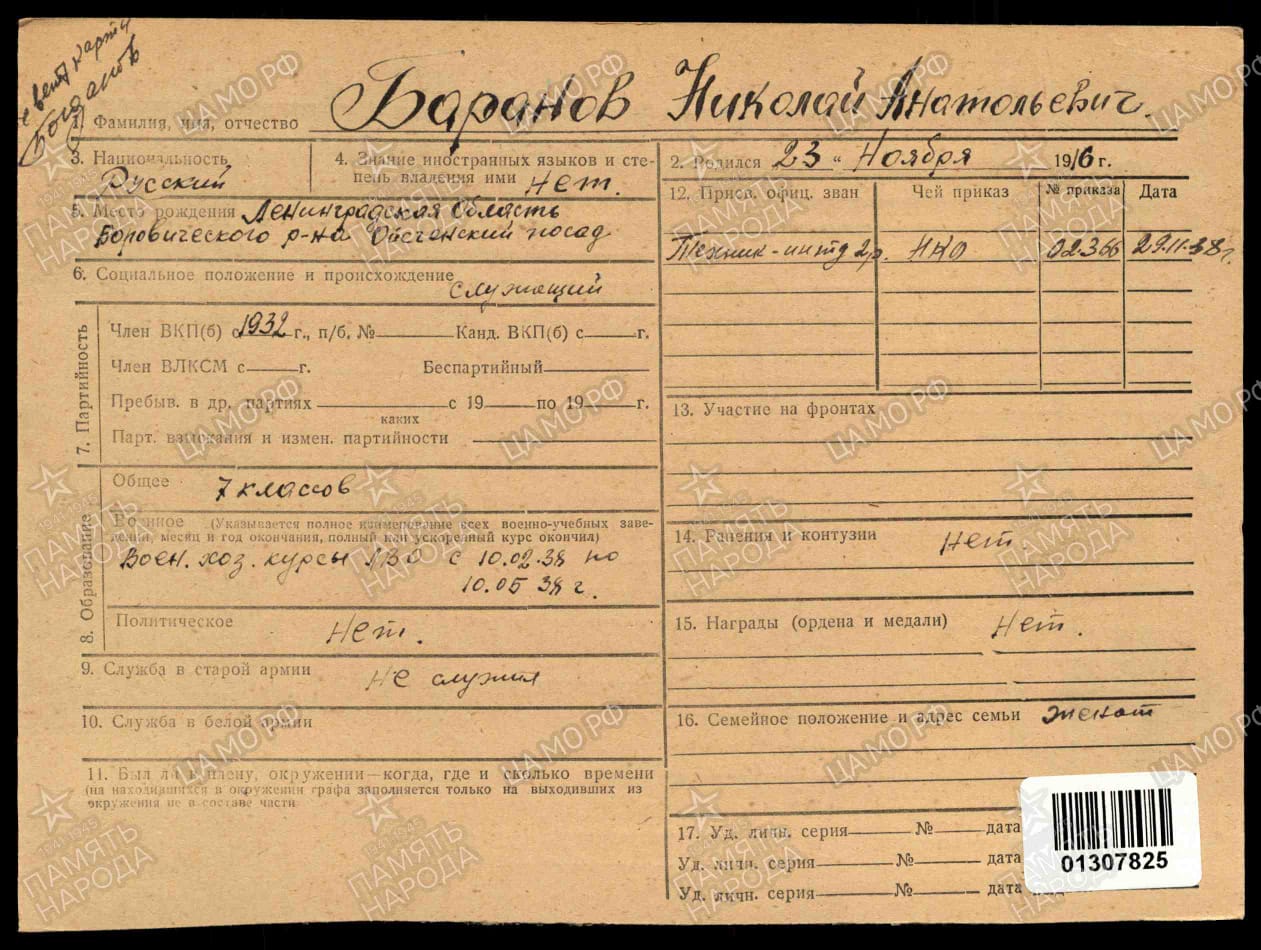 карту
Богданов
1. Фамилия, имя, отчество Баранов Николай Анатольевич.
3. Национальность
Русский
4. Знание иностранных языков и сте-
пень владения ими нет.
5. Место рождения Ленинградская область
Боровического р-на посад
6. Социальное положение и происхождение
служащий
7. Партийность
Член ВКП(б) с 1932 г., п/б. № Канд. ВКП(б) с г.
Член ВЛКСМ с г. Беспартийный
Пребыв. в др. партиях с 19 по 19 г.
каких
Парт. взыскания и измен. партийности
8. Образование
Общее 7 классов
Военное (Указывается полное наименование всех военно-учебных заве-
дений, месяц и год окончания, полный или ускоренный курс окончил)
Воен. хоз. курсы ЛВО с 10.02.38 по
10.05 38 г.
Политическое Нет.
9. Служба в старой армии Не служил
10. Служба в белой армии
11. Был ли в плену, окружении—когда, где и сколько времени
(на находившихся в окружении графа заполняется только на выходивших из
окружения не в составе части
2. Родился 23 " Ноября 1916 г.
12. Присв. офиц. зван Чей приказ № приказа Дата
Техник-интд 2р. НКО 02366 29.11.38г.
13. Участие на фронтах
14. Ранения и контузии нет.
15. Награды (ордена и медали) Нет.
16. Семейное положение и адрес семьи женат
17. Уд. личн. серия № дата
Уд. личн. серия № дата
Уд. личн. серия № дата
01307825
ЦАМО РФ
1941-1945
ПАМЯТЬ
НАРОДА